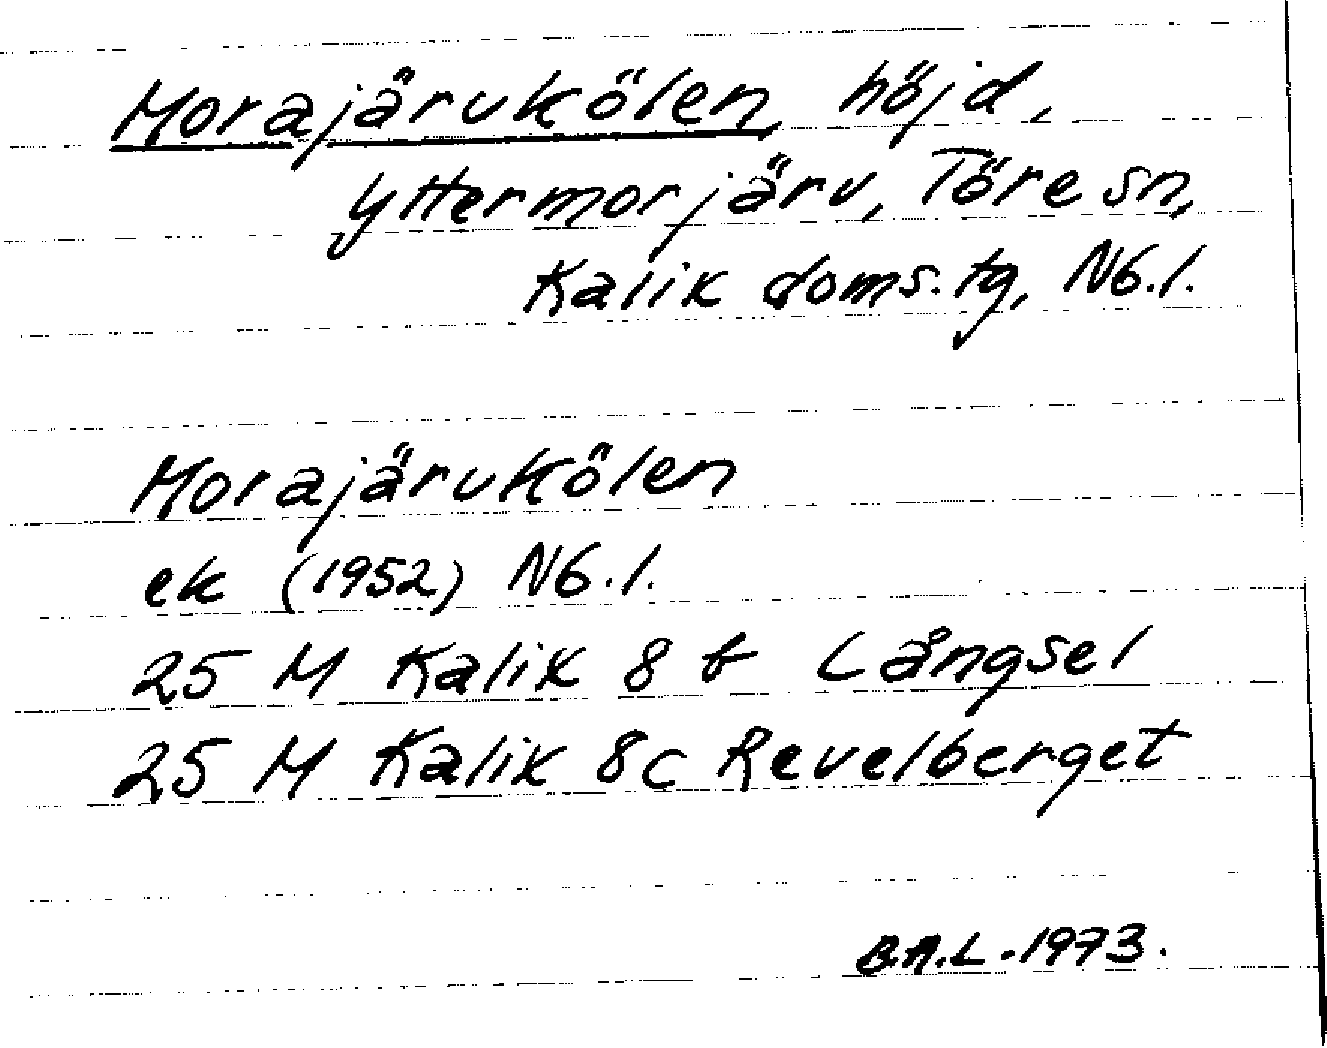 Morajärvkölen, höjd,
Yttermorjärv, Töre sn,
Kalix doms.tg, Nb.l.
Morajärvkölen
ek (1952) Nb.l.
25 M Kalix 8 b Långsel
25 M Kalix 8c Revelberget
B.A.L. 1973.